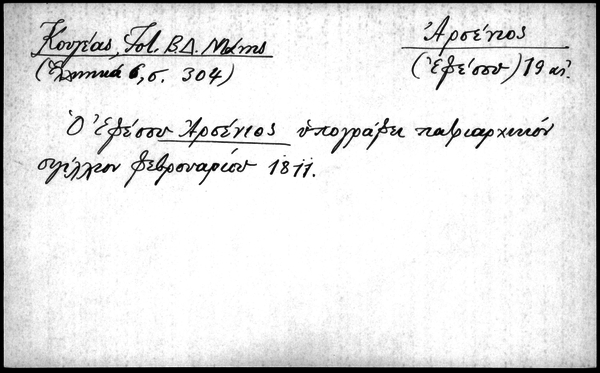 Κουγέας, Ἱστ. Β.Δ. Μάνης
(Ἑλληνικά 6, σ. 304)
Ἀρσένιος
(Ἐφέσου) 19 αἰ.
Ὁ Ἐφέσου Ἀρσένιος ὑπογράφει πατριαρχικόν
σιγίλλιον φεβρουαρίου 1811.